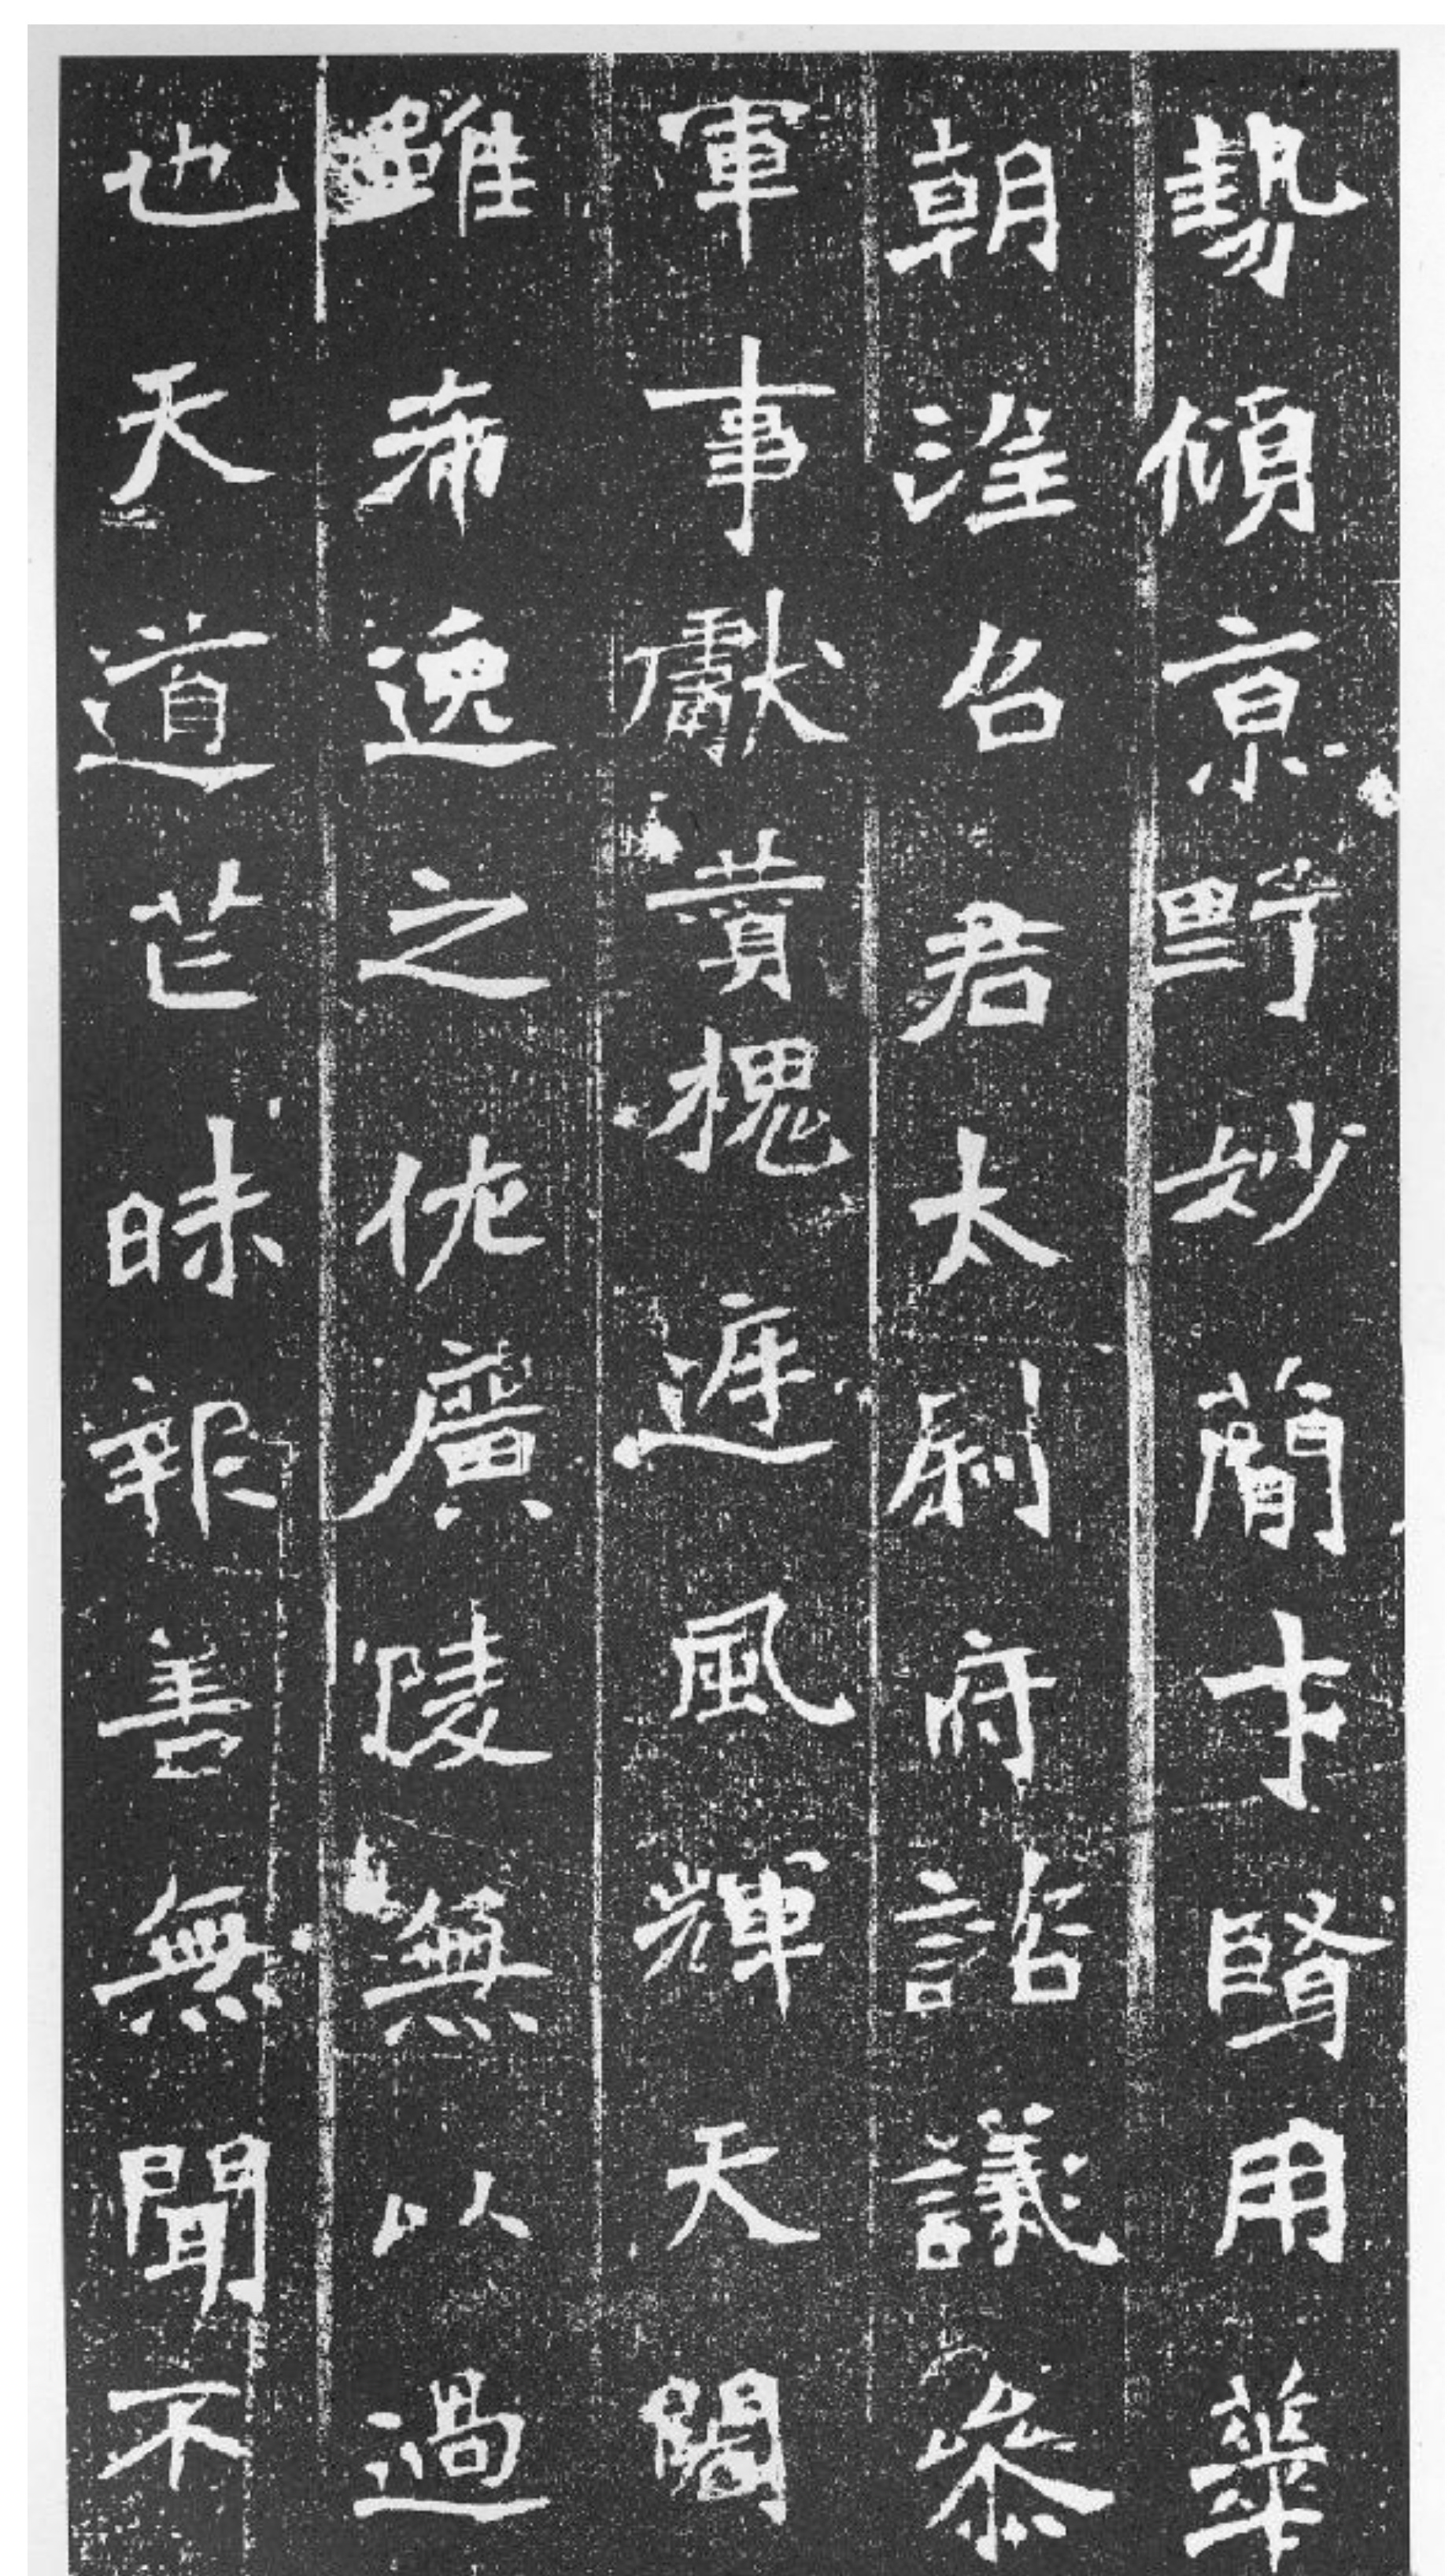 勢傾京野妙蕳才賢用華
朝淮召君太尉府諮議參
軍事獻賛槐遅風輝天閣
雖希逸之佐廣陵無以過
也天道芒昧報善無聞不